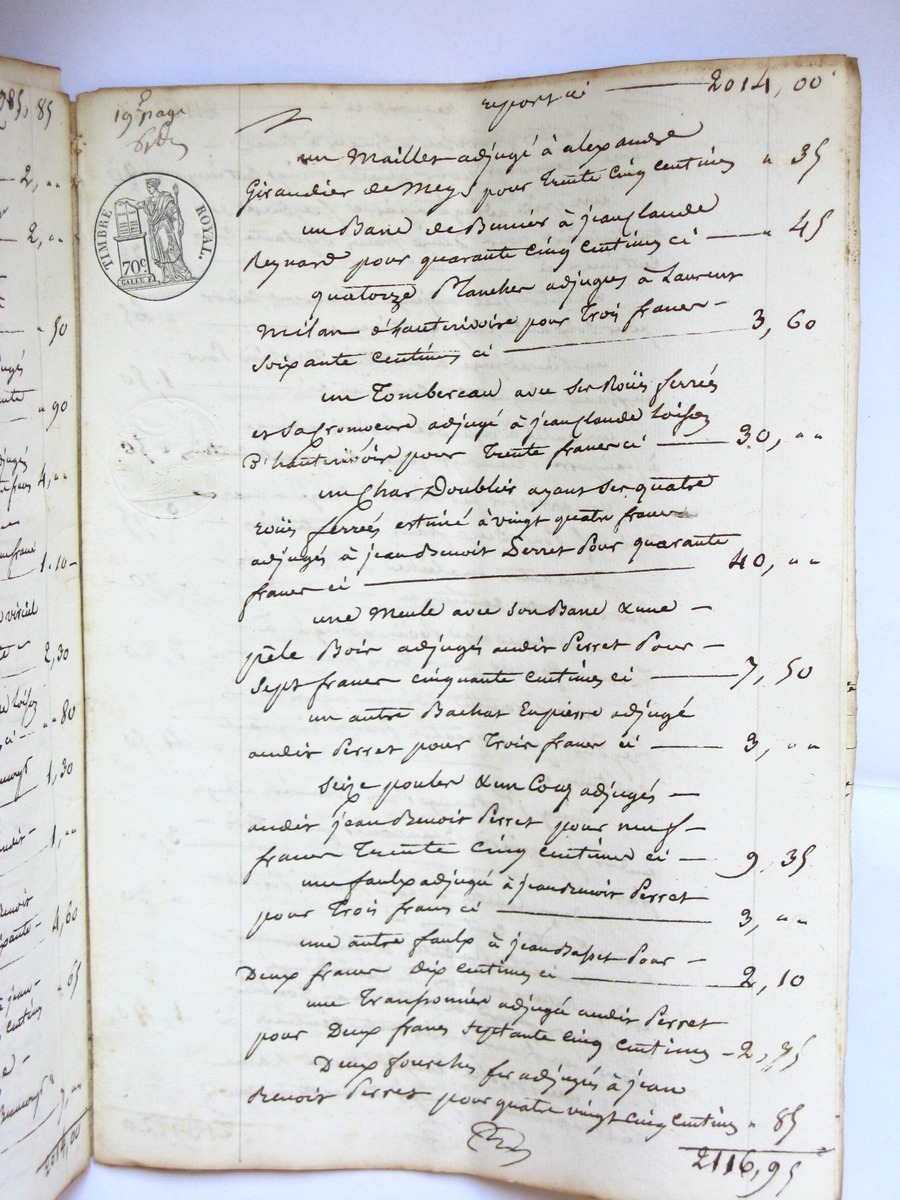 19e page
TIMBRE ROYAL.
70c.
report ci 2014,00
un Maillet adjugé à alexandre
Giraudier de Meys pour Trente Cinq Centimes " 35
un Banc de à jeanClaude
Reynard pour quarante cinq Centimes ci " 45
quatorze Planches adjugées à Laurent
Milan d'hauterivoire pour Trois francs
soixante centimes ci 3, 60
un Tombereau avec ses Roües ferrées
et sa adjugé à jeanClaude loison
D'hauterivoire pour Trente francs ci 30, " "
un Char Doublier ayant ses quatre
roües ferrées estimé à vingt quatre francs
adjugés à jeanBenoit Perret Pour quarante
francs ci 40, " "
une Meule avec son Banc & une
pêle Bois adjugés audit Perret Pour
sept francs cinquante centimes ci 7, 50
un autre Bachat En pierre adjugé
audit Perret pour Trois francs ci 3, " "
seize poules & un Coq adjugés
audit jeanBenoit Perret pour neuf
francs Trente Cinq Centimes ci 9, 35
une faulx adjugé à jeanBenoit Perret
pour Trois francs ci 3, " "
une autre faulx à jean Pour
Deux francs dix centimes ci 2, 10
une adjugé audit Perret
pour Deux francs septante Cinq Centimes 2, 75
Deux fourches fer adjugés à jean
Benoit Perret pour quatre vingt cinq Centimes " 85
2116,95
985, 85
2, " "
2, " "
" 50
" 90
4, " "
1.10
2,30
" 80
1,30
1, " "
4,60
" 65
7, " "
2014,00